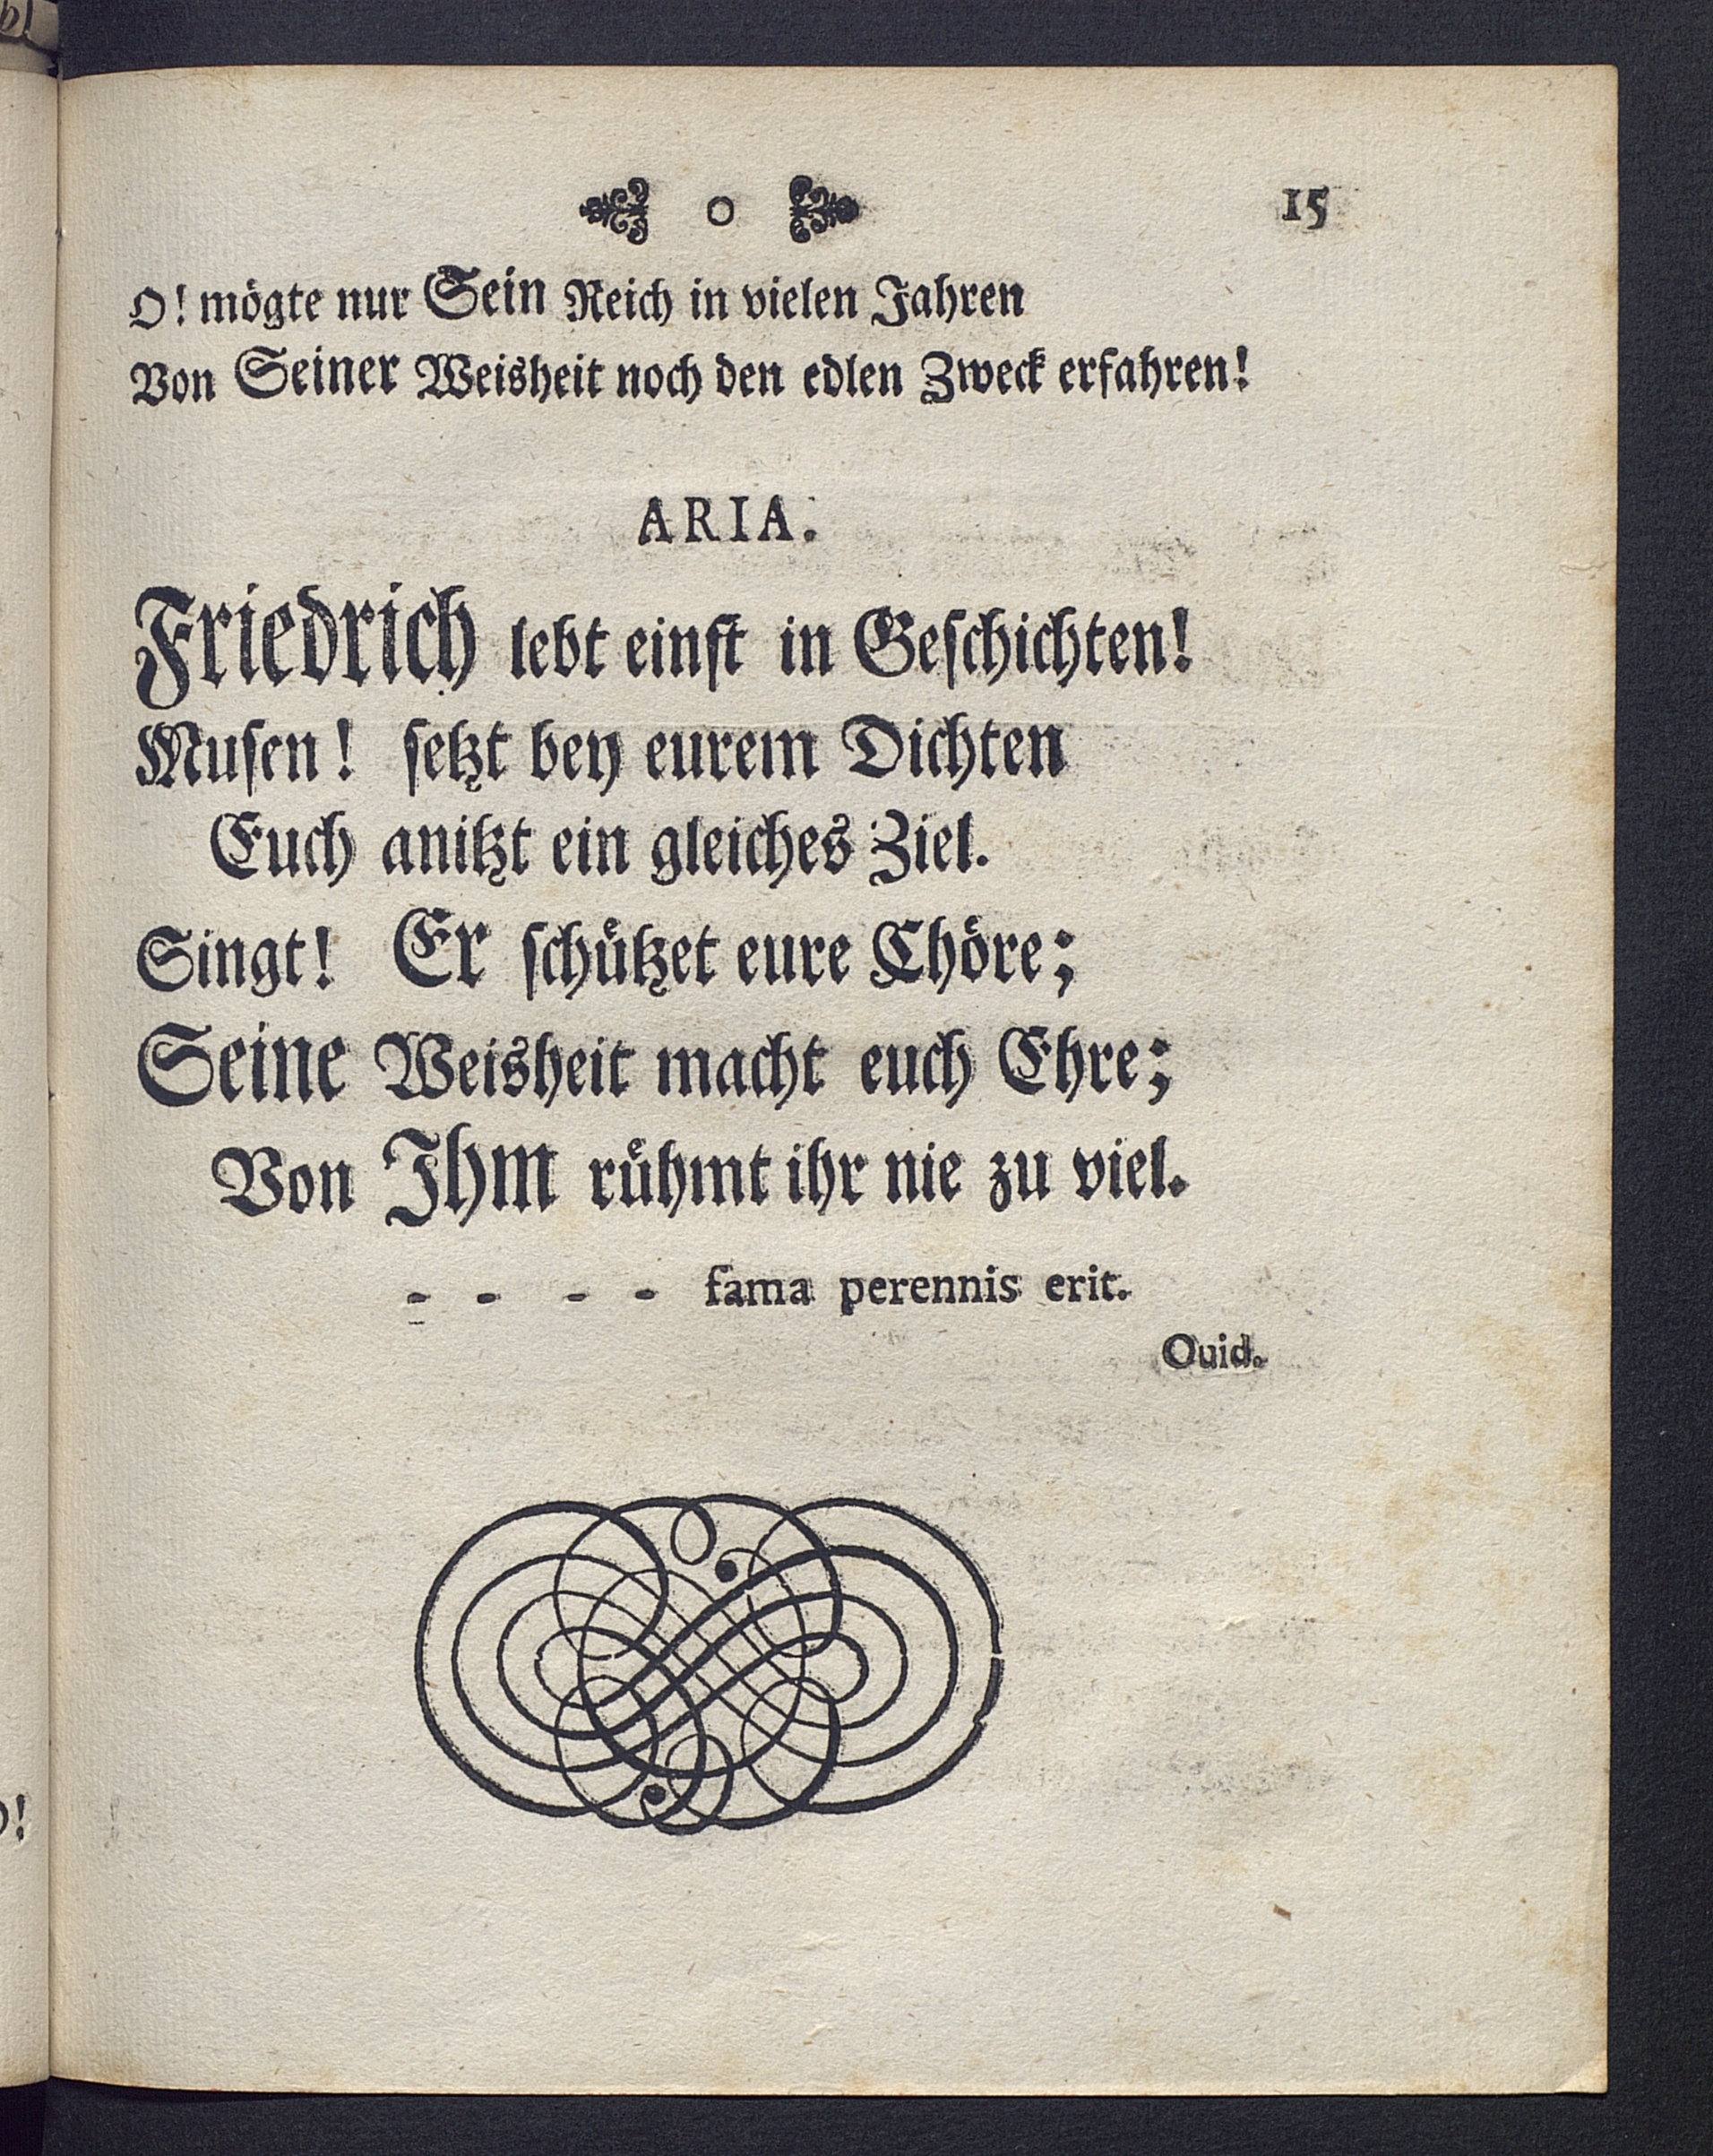 o 15
O! mögte nur Sein Reich in vielen Jahren
Von Seiner Weisheit noch den edlen Zweck erfahren!
ARIA.
Friedrich lebt einſt in Geſchichten!
Muſen! ſetzt bey eurem Dichten
Euch anitzt ein gleiches Ziel.
Singt! Er ſchützet eure Chöre;
Seine Weisheit macht euch Ehre;
Von Ihm rühmt ihr nie zu viel.
- - - - fama perennis erit.
Ouid.